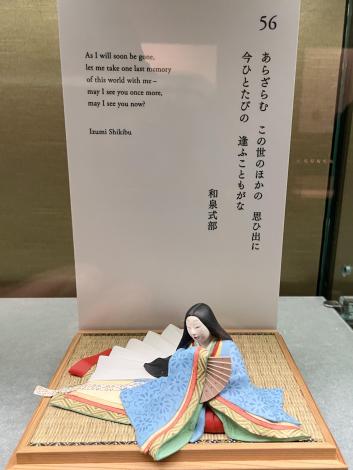 56
As I will soon be gone,
let me take one last memory
of this world with me—
may I see you once more,
may I see you now?
Izumi Shikibu
あらざらむ　この世のほかの　思ひ出に
今ひとたびの　逢ふこともがな
和泉式部